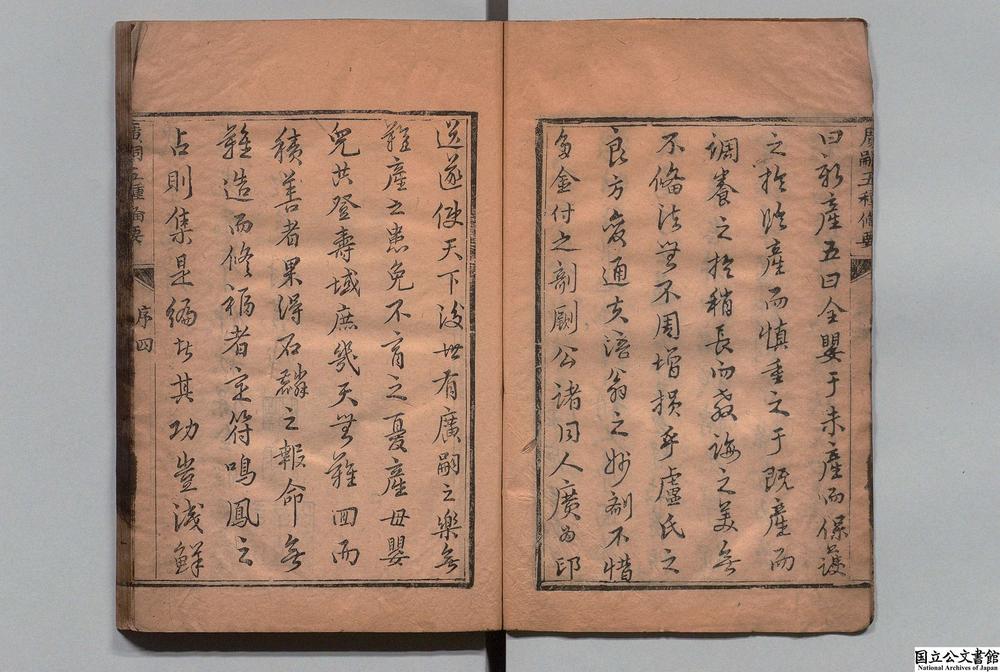 廣嗣五種備要
曰新產五曰全嬰于未產而保護
之於臨產而慎重之于既產而
調養之於稍長而教誨之美無
不備法無不周增損乎盧氏之
良方變通夫語翁之妙劑不惜
多金付之剞劂公諸同人廣為印
送遂使天下後世有廣嗣之樂無
難產之患免不育之憂產母嬰
兒共登壽域庶幾天無難回而
積善者果得石麟之報命無
難造而修福者定符鳴鳳之
占則集是編者其功豈淺鮮
廣嗣五種備要
序四
国立公文書館
National Archives of Japan